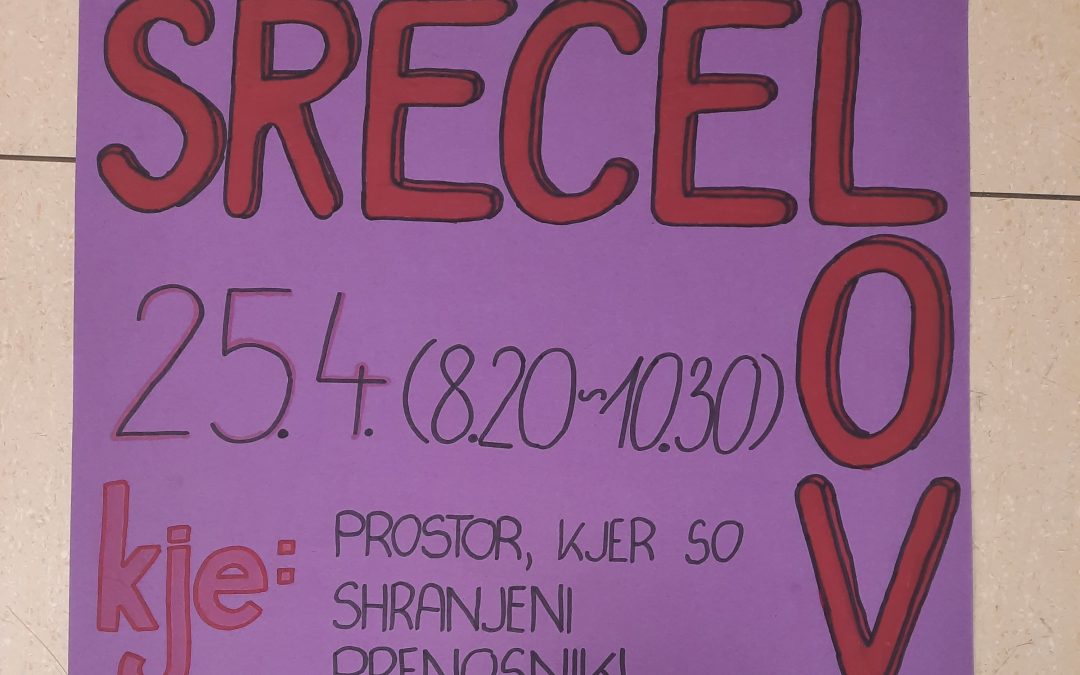 SRECELOV
25.4. (8.20~10.30)
kje: PROSTOR, KJER SO
SHRANJENI
PRENOSNIKI